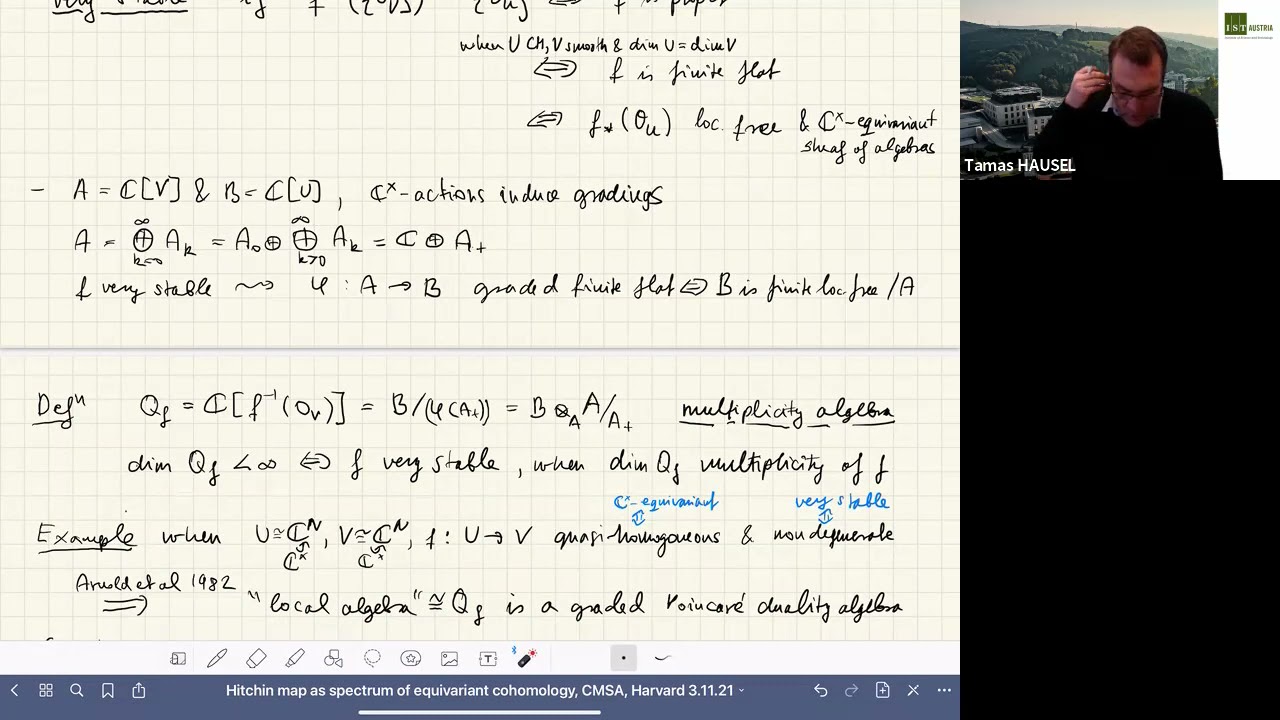 very stable if f^{-1}(0_V) = {0_U} ⟺ f is proper
when U CM, V smooth & dim U = dim V
⟺ f is finite flat
⟺ f_*(O_U) loc. free & ℂ^×-equivariant
sheaf of algebras
- A = ℂ[V] & B = ℂ[U], ℂ^×-actions induce gradings
A = ⊕_{k=0}^∞ A_k = A_0 ⊕ ⊕_{k>0}^∞ A_k = ℂ ⊕ A_+
f very stable ⇝ φ : A → B graded finite flat ⟺ B is finite loc. free / A
Defⁿ Q_f = ℂ[f^{-1}(0_V)] = B/(φ(A_+)) = B ⊗_A A/A_+ multiplicity algebra
dim Q_f < ∞ ⟺ f very stable, when dim Q_f multiplicity of f
ℂ^×-equivariant very stable
Example when U ≅ ℂ^N, V ≅ ℂ^N, f : U → V quasi-homogoneous & nondegenerate
ℂ^× ℂ^×
Arnold et al 1982
⟹ "local algebra" ≅ Q_f is a graded Poincaré duality algebra
Hitchin map as spectrum of equivariant cohomology, CMSA, Harvard 3.11.21
Tamas HAUSEL
IST AUSTRIA